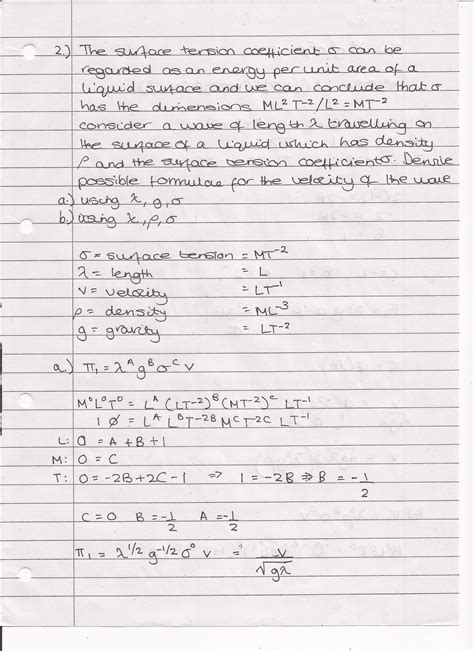 2.) The surface tension coefficient σ can be
regarded as an energy per unit area of a
liquid surface and we can conclude that σ
has the dimensions ML² T⁻²/L² = MT⁻²
consider a wave of length λ travelling on
the surface of a liquid which has density
ρ and the surface tension coefficient σ. Derive
possible formulae for the velocity of the wave
a.) using λ, g, σ
b.) using λ, ρ, σ
σ = surface tension = MT⁻²
λ = length = L
v = velocity = LT⁻¹
ρ = density = ML⁻³
g = gravity = LT⁻²
a.) π₁ = λᴬ gᴮ σᶜ v
M⁰L⁰T⁰ = Lᴬ (LT⁻²)ᴮ (MT⁻²)ᶜ LT⁻¹
= Lᴬ LᴮT⁻²ᴮ MᶜT⁻²ᶜ LT⁻¹
L: 0 = A + B + 1
M: 0 = C
T: 0 = -2B + 2C - 1 ⇒ 1 = -2B ⇒ B = -1/2
C = 0 B = -1/2 A = -1/2
π₁ = λ¹/² g⁻¹/² σ⁰ v = v/√gλ